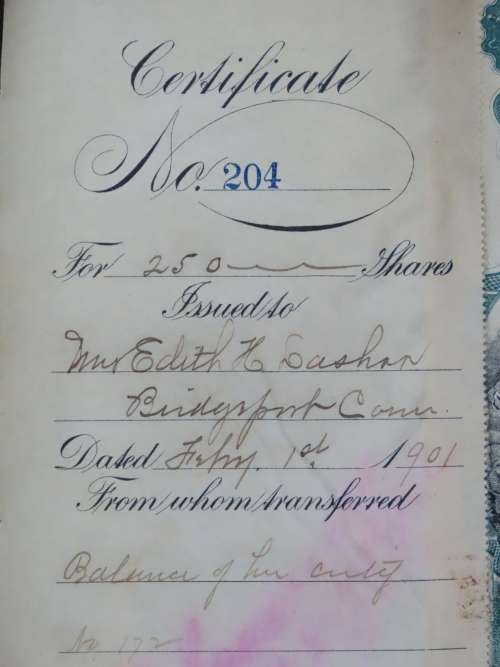 Certificate
No. 204
For 250 Shares
Issued to
Mrs Edith H
Bridgeport Conn.
Dated Feby. 1st 1901
From whom transferred
Balance of her certif
No 172